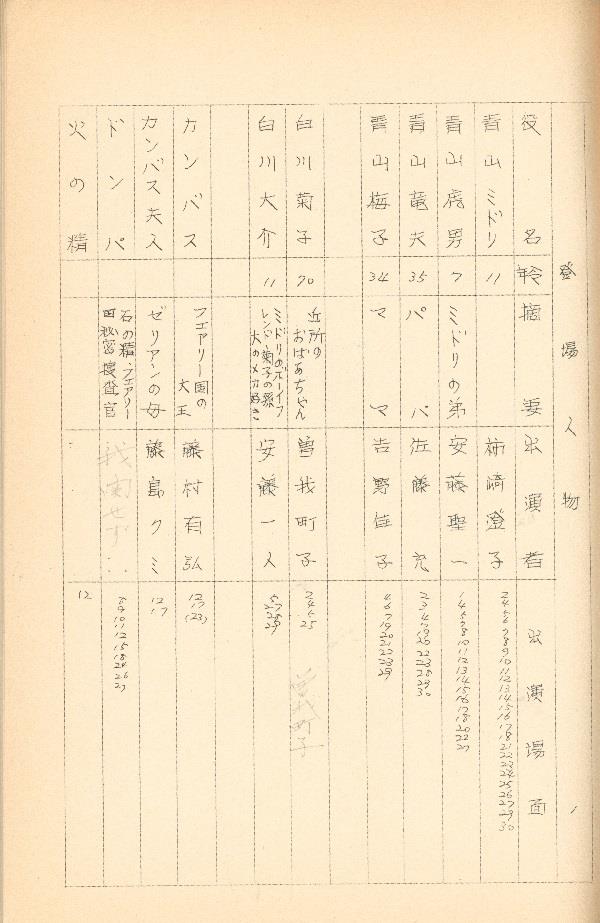 登場人物
役名 年令 摘要 出演者 出演場面
青山ミドリ 11 柿崎澄子 2 4 5 6 7 8 9 10 11 12 13 14 15 16 17 18 21 22 23 24 25 26 27 29 30
青山虎男 7 ミドリの弟 安藤聖一 1 4 5 7 8 10 11 12 13 14 15 16 17 18 20 22 27
青山竜夫 35 パパ 佐藤充 2 3 4 7 19 20 22 23 25 29 30
青山梅子 34 ママ 吉野佳子 4 6 7 19 20 21 22 23 29
白川菊子 70 近所のおばあちゃん 曽我町子 2 4 5 25
曽我町子
白川大介 11 ミドリのボーイフレンド・菊子の孫 大のメカ好き 安藤一人 5 27 28 29
カンバス フェアリー国の大王 藤村有弘 12 17 (23)
カンバス夫人 ゼリアンの母 藤島クミ 12 17
ドンパ 石の精・フェアリー国秘密捜査官 8 9 10 11 12 15 18 24 26 27
火の精 12